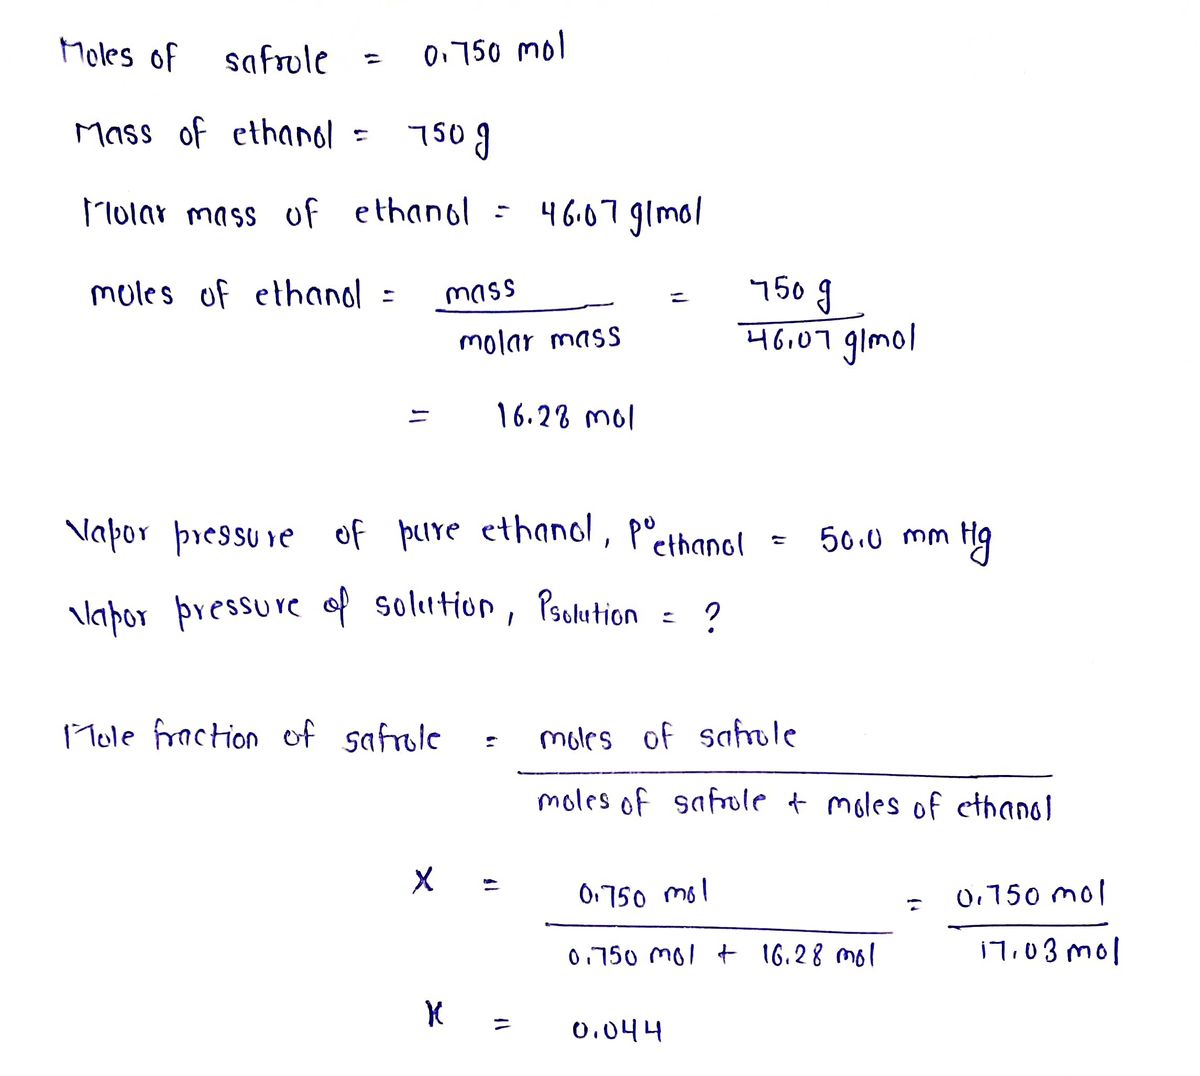 Moles of safrole = 0.750 mol
Mass of ethanol = 750 g
Molar mass of ethanol = 46.07 g/mol
moles of ethanol = mass / molar mass = 750 g / 46.07 g/mol
= 16.28 mol
Vapor pressure of pure ethanol, P°ethanol = 50.0 mm Hg
Vapor pressure of solution, Psolution = ?
Mole fraction of safrole = moles of safrole / moles of safrole + moles of ethanol
X = 0.750 mol / 0.750 mol + 16.28 mol = 0.750 mol / 17.03 mol
X = 0.044